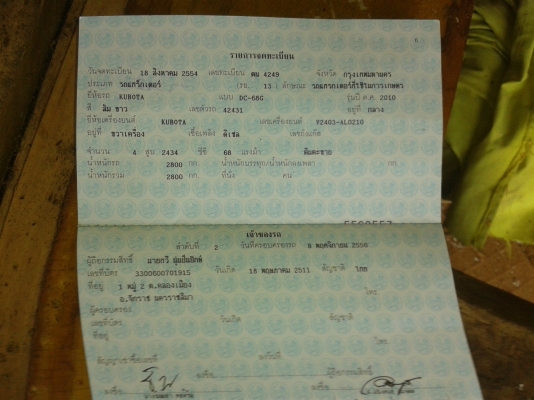 รายการจดทะเบียน
วันจดทะเบียน 18 สิงหาคม 2554 เลขทะเบียน ตม 4249 จังหวัด กรุงเทพมหานคร
ประเภท รถแทร็กเตอร์ (รย. 13) ลักษณะ รถแทรกเตอร์ที่ใช้ในการเกษตร
ยี่ห้อรถ KUBOTA แบบ DC-68G รุ่นปี ค.ศ. 2010
สี ส้ม ขาว เลขตัวรถ 42431 อยู่ที่ กลาง
ยี่ห้อเครื่องยนต์ KUBOTA เลขเครื่องยนต์ V2403-AL0210
อยู่ที่ ขวาเครื่อง เชื้อเพลิง ดีเซล เลขถังแก๊ส
จำนวน 4 สูบ 2434 ซีซี 66 แรงม้า
น้ำหนักรถ 2800 กก. น้ำหนักบรรทุก/น้ำหนักลงเพลา กก.
น้ำหนักรวม 2800 กก. ที่นั่ง คน
เจ้าของรถ
ลำดับที่ 2 วันที่ครอบครองรถ 8 พฤศจิกายน 2556
ผู้ถือกรรมสิทธิ์ นายทวี
เลขที่บัตร 3300600701915 วันเกิด 18 พฤษภาคม 2511 สัญชาติ ไทย
ที่อยู่ 1 หมู่ 2 ต.คลองเมือง
อ.จักราช นครราชสีมา โทร.
ผู้ครอบครอง
เลขที่บัตร วันเกิด สัญชาติ
ที่อยู่
โทร.
สัญญาเช่าซื้อเลขที่ ลงวันที่
ลงชื่อ ผู้ถือกรรมสิทธิ์
ลงชื่อ ลงชื่อ